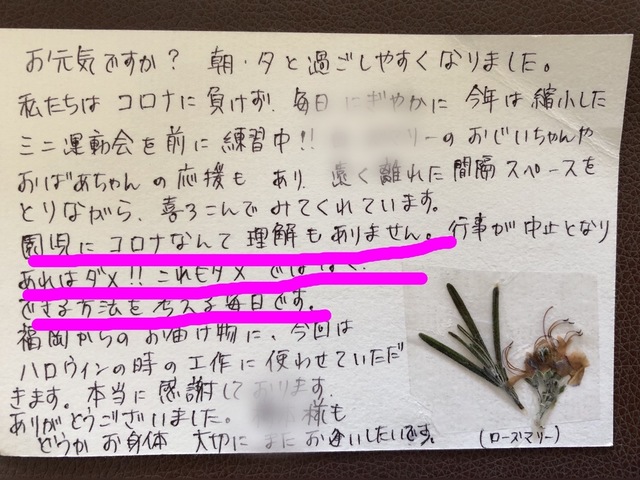 お元気ですか？ 朝・夕と過ごしやすくなりました。
私たちは コロナに負けず、毎日 にぎやかに 今年は縮小した
ミニ運動会を前に練習中!! リーのおじいちゃんや
おばあちゃんの応援も あり、遠く離れた間隔スペースを
とりながら、喜ろこんでみてくれています。
園児にコロナなんて理解もありません。行事が中止となり
あれはダメ!! これもダメ ではなく、
できる方法を考える毎日です。
福岡からのお届け物に、今回は
ハロウィンの時の工作に使わせていただ
きます。本当に感謝しております。
ありがとうございました。 様も
どうか お身体 大切に またお会いしたいです。
(ローズマリー)